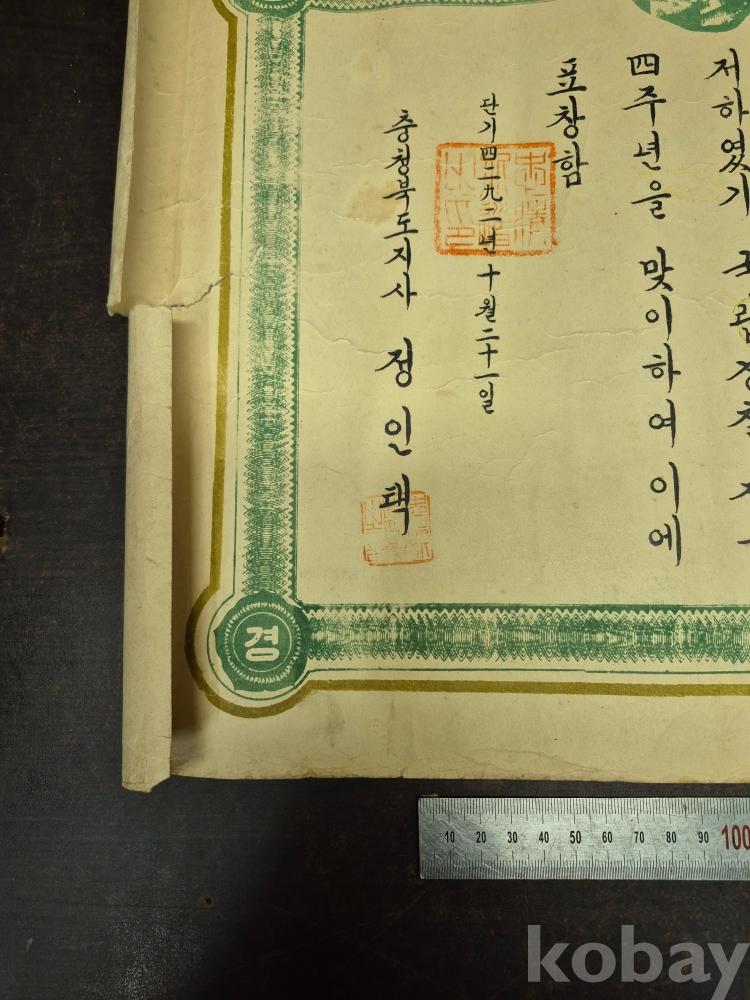 저하였기 국립경찰
四주년을 맞이하여 이에
포창함
단기四二九二년十월二十一일
충청북도지사 정인택
경
10 20 30 40 50 60 70 80 90 100
kobay